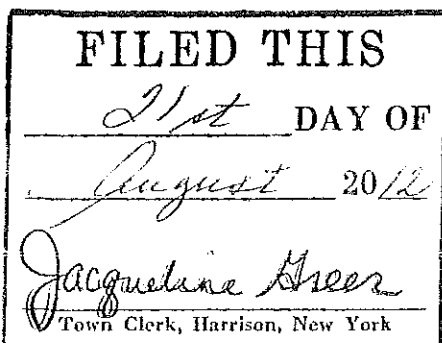 FILED THIS
21st DAY OF
August 2012
Jacqueline Greer
Town Clerk, Harrison, New York